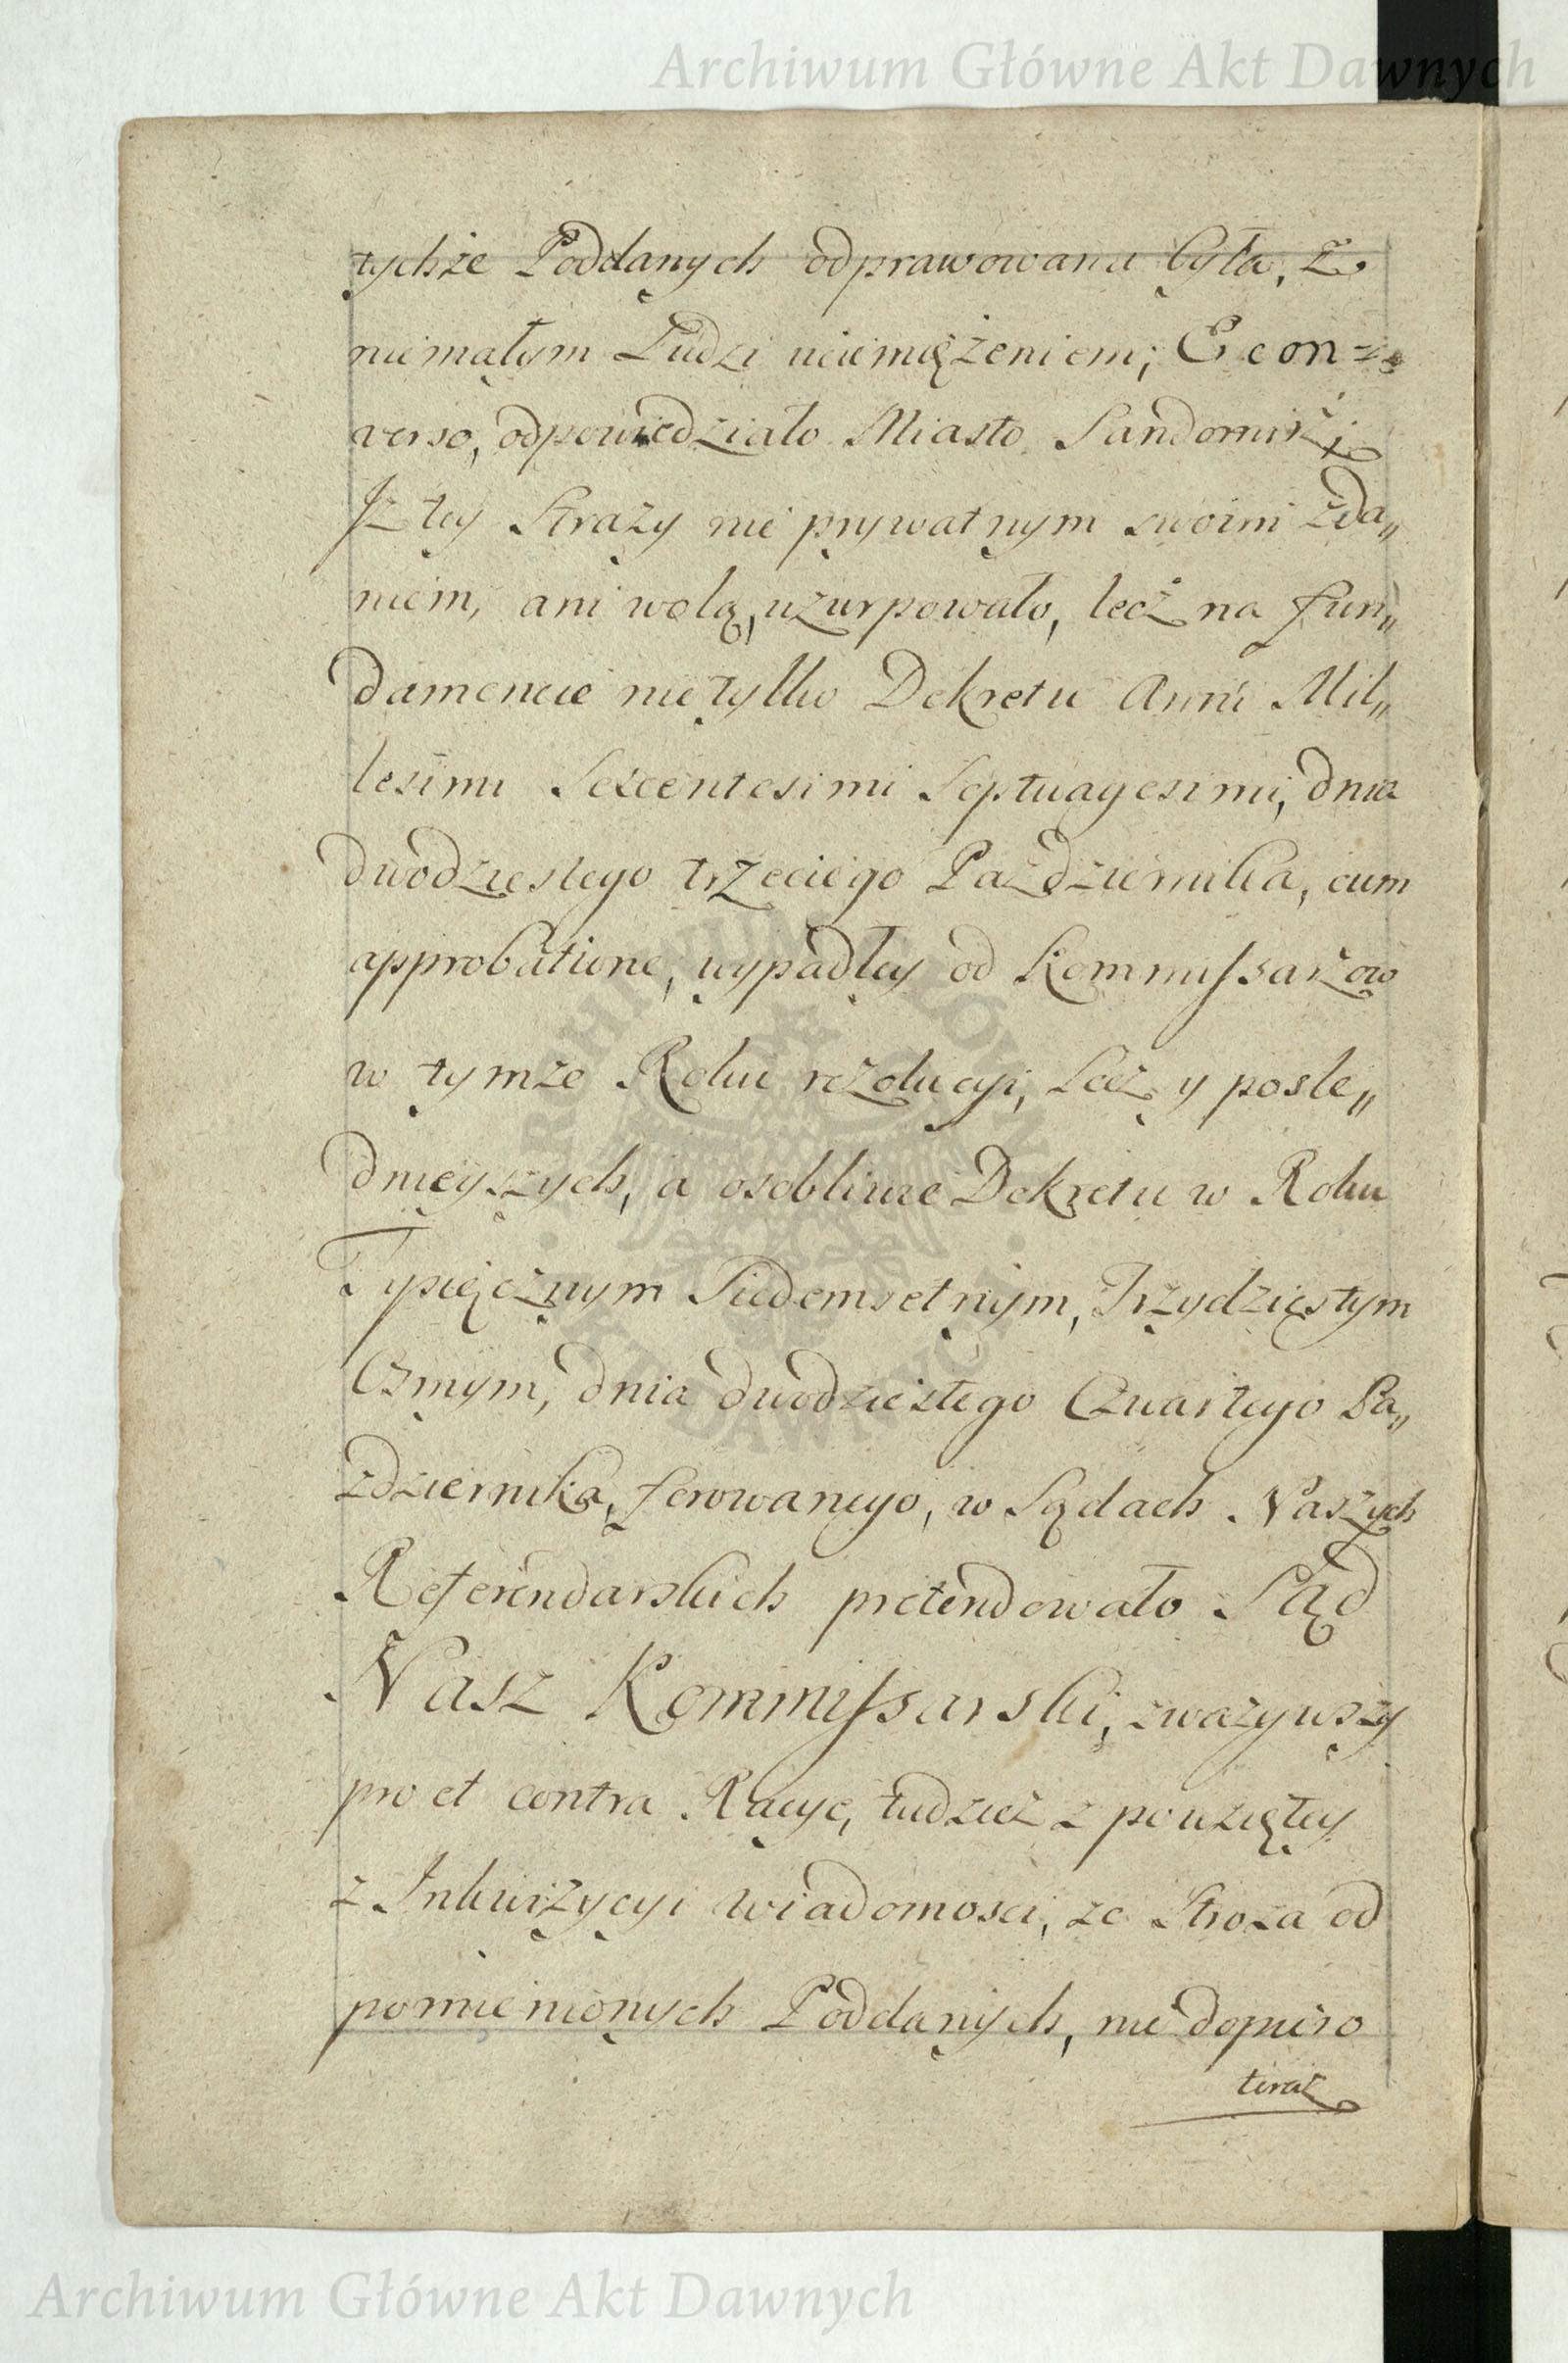 Archiwum Główne Akt Dawnych
tychże Poddanych odprawowana była, z
niemałym Ludzi uciemiężeniem; E con=
verso, odpowiedziało Miasto Sandomirz,
Jż tey Straży nie prywatnym swoim zda„
niem, ani wolą, uzurpowało, lecz na fun„
damencie nie tylko Dekretu Anni Mil„
lesimi Sexcentesimi Septuagesimi, dnia
dwodziestego trzeciego Października, cum
approbatione, wypadłey od Kommissarzow
w tymże Roku rezolucyi, Lecz y posle„
dnieyszych, a osobliwie Dekretu w Roku
Tysięcznym Siedemsetnym, Trzydziestym
Osmym, dnia dwodziestego Czwartego Pa„
zdziernika, ferowanego, w Sądach Naszych
Referendarskich pretendowało Sąd
Nasz Kommissarski, zważywszy
pro et contra Racye, tudzież z powziętey
z Inkwizycyi wiadomosci, ze Stroza od
pomienionych Poddanych, nie dopiro
teraz
Archiwum Główne Akt Dawnych